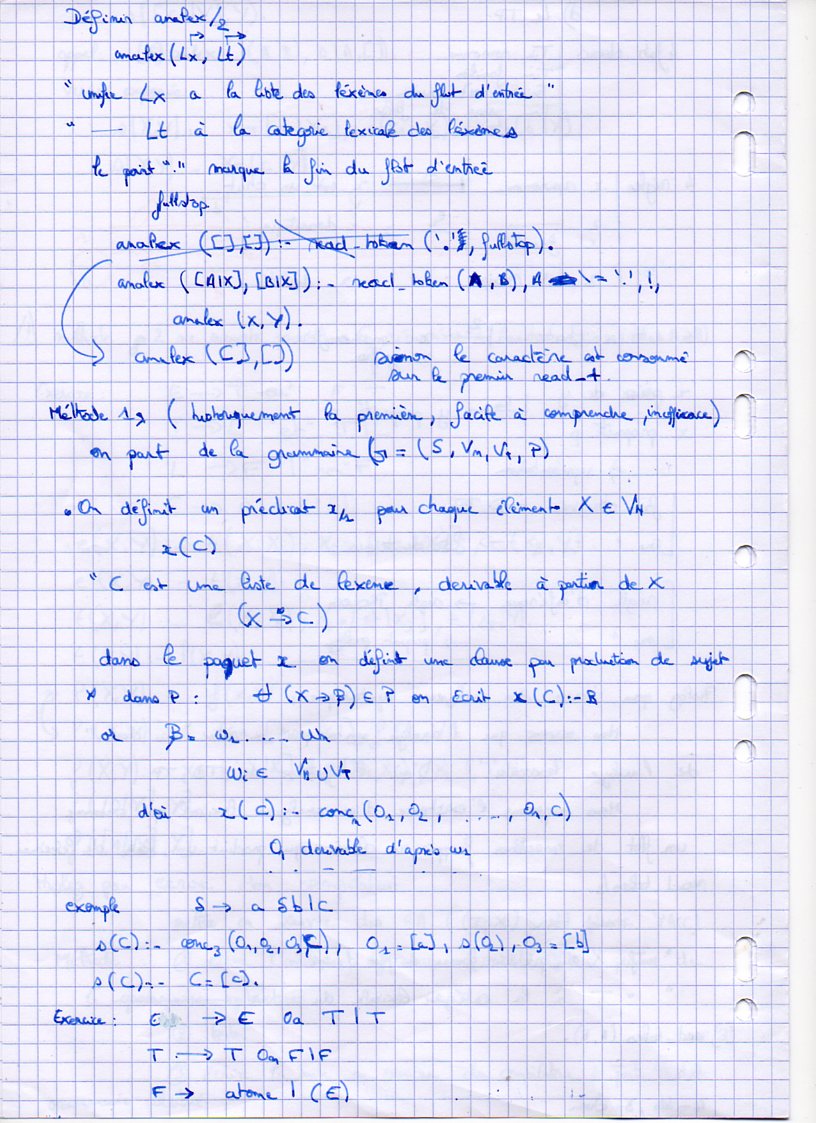 Définir analex/2
analex(Lx, Lt)
"unifie Lx a la liste des léxèmes du flot d'entrée"
" — Lt à la categorie lexicale des léxèmes
le point "." marque la fin du flot d'entreé
fullstop
analex ([],[]) :- read_token ('.', fullstop).
analex ([A|X], [B|X]) :- read_token (A, B), A \= '.', !,
analex (X, Y).
analex ([],[]) sinon le caractère est consummé
sur le premier read_t.
Méthode 1, (historiquement la première, facile à comprendre, inefficace)
on part de la grammaire G = (S, VN, VT, P)
• On définit un prédicat x/1 pour chaque élément X ∈ VN
x(C)
" C est une liste de lexeme, derivable à partir de X
(X ⇒ C)
dans le paquet x on définit une clause par production de sujet
X dans P : ∀ (X → β) ∈ P on écrit x(C) :- B
or β = ω1 .... ωn
ωi ∈ VN ∪ VT
d'où x(C) :- concn(O1, O2, ....., On, C)
O1 derivable d'après ω1
exemple S → a S b | c
s(C) :- conc3(O1, O2, O3, C), O1 = [a], s(O2), O3 = [b]
s(C) :- C = [c].
Exercice : E → E Oa T | T
T → T Om F | F
F → atome | (E)